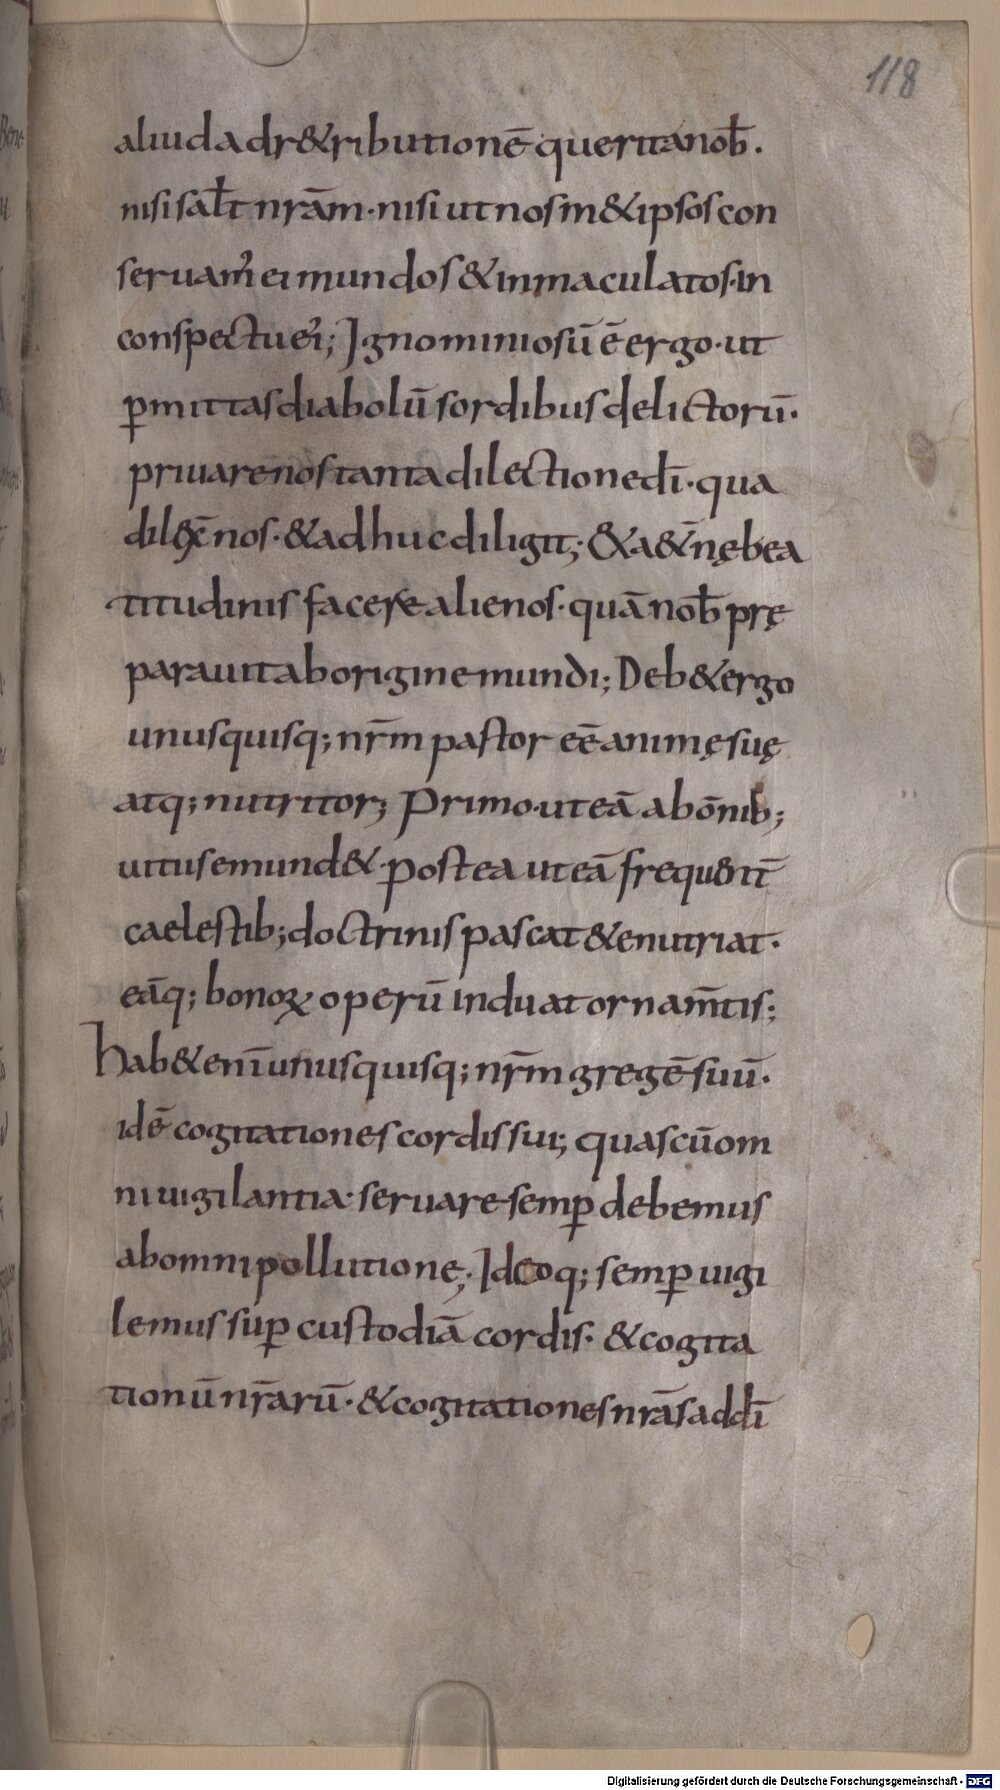 118
aliud ad r&ributionē querit a nob̄.
nisi sal̄t nrām· nisi ut nosm&ipsos con
seruam᾽ ei mundos & inmaculatos· in
conspectu ei᾽; Ignominiosū ē ergo· ut
ꝑmittas diabolū sordibus delictorū·
priuare nos tanta dilectione dī· qua
dil&̄ nos· & adhuc diligit; & a&̄nę bea
titudinis facere alienos· quā nob̄ prę
parauit ab origine mundi; Deb& ergo
unusquisq; nrm̄ pastor eē animę suę
atq; nutritor; Primo· ut eā ab ōnib;
uitus emund&· postea ut eā frequent̄
caelestib; doctrinis pascat & enutriat·
eāq; bonoꝝ operū induat ornam̄tis;
hab& enī unusquisq; nrm̄ gregē suū·
idē cogitationes cordis sui; quas cū om
ni uigilantia· seruare semꝑ debemus
ab omni pollutionę; Ideoq; semꝑ uigi
lemus suꝑ custodiā cordis· & cogita
tionū nrārū· & cogitationes nrās ad dī
Digitalisierung gefördert durch die Deutsche Forschungsgemeinschaft - DFG